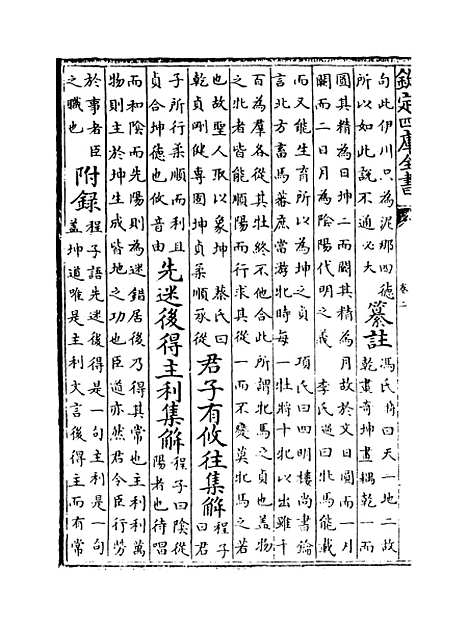 欽定四庫全書
卷二
句此伊川只為泥那四德
所以如此說不通必大
纂註
馮氏椅曰天一地二故
乾畫奇坤畫耦乾一而
圓其精為日坤二而闕其精為月故於文日圓而一月
闕而二日月為陰陽代明之義 李氏過曰牝馬能載
而又能生育所以為坤之貞 項氏曰四明樓尚書論
言北方畜馬蕃庶當游牝時每一牡將十牝以出雖千
百為羣各從其牡終不他合此所謂牝馬之貞也蓋物
之牝者皆能順陽而行求其從一而不變莫牝馬之若
也故聖人取以象坤 蔡氏曰
乾貞剛健專固坤貞柔順承從
君子有攸往集解
程子
曰君
子所行柔順而利且
貞合坤德也攸音由
先迷後得主利集解
程子曰陰從
陽者也待唱
而和陰而先陽則為迷錯居後乃得其常也主利利萬
物則主於坤生成皆地之功也臣道亦然君令臣行勞
於事者臣
之職也
附錄
程子語先迷後得是一句主利是一句
蓋坤道唯是主利文言後得主而有常